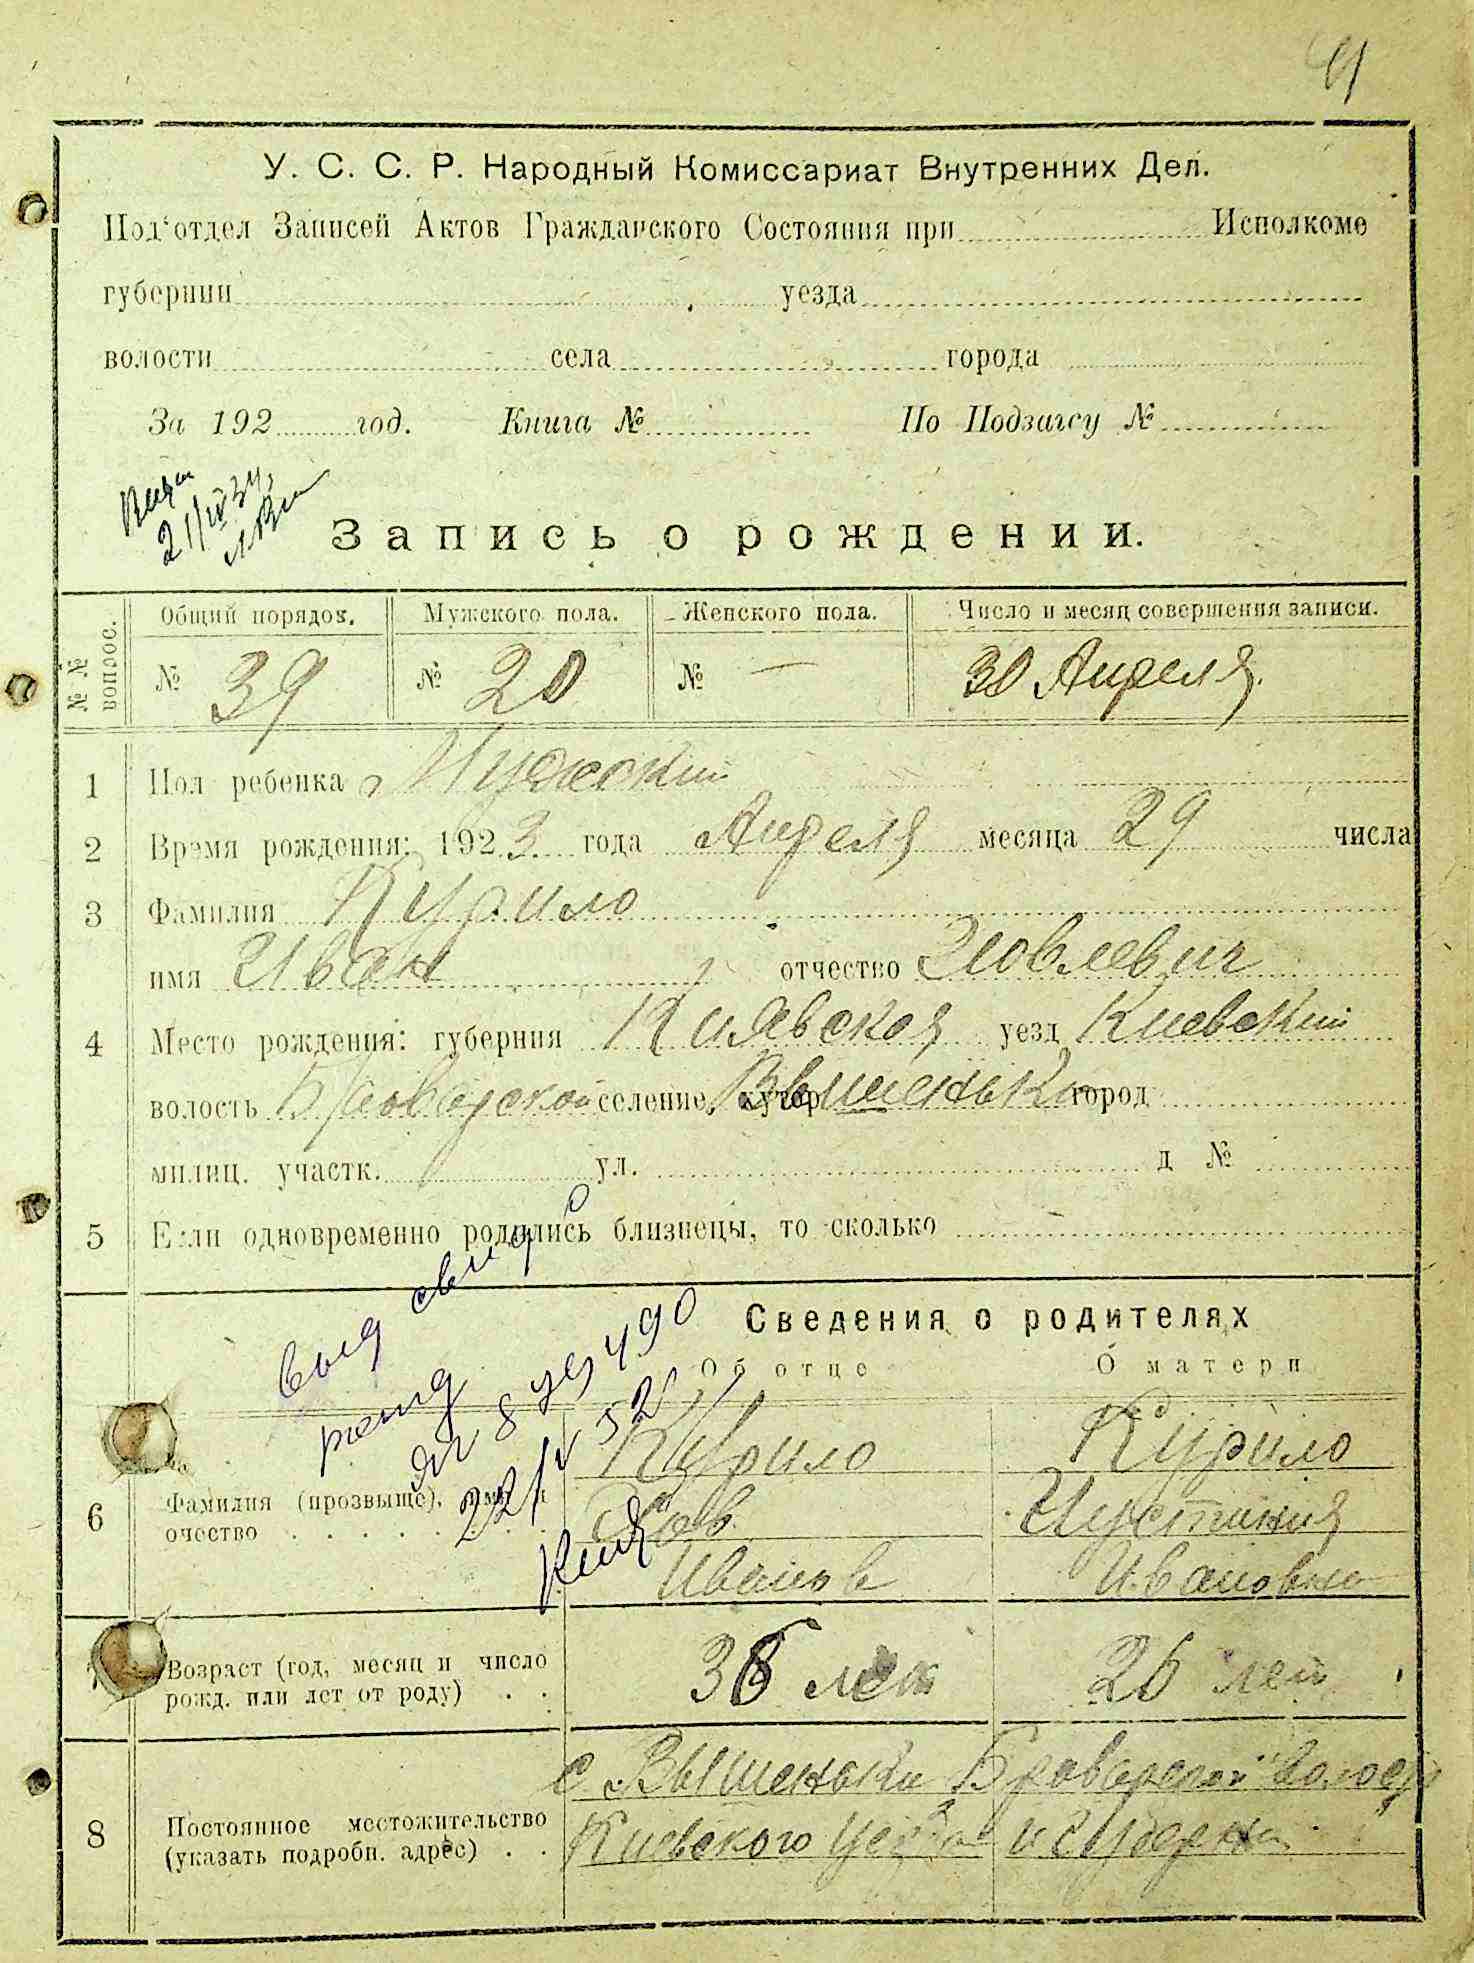 41
У. С. С. Р. Народный Комиссариат Внутренних Дел.
Под'отдел Записей Актов Гражданского Состояния при Исполкоме
губернии уезда
волости села города
За 192 год. Книга № По Подзагсу №
21/IV 34
Запись о рождении.
№№ вопрос. Общий порядок. Мужского пола. Женского пола. Число и месяц совершения записи.
№ 39 № 20 № — 30 Апреля.
1 Пол ребенка Мужский
2 Время рождения: 1923 года Апреля месяца 29 числа
3 Фамилия Курило
имя Иван отчество Иовлевич
4 Место рождения: губерния Киявская уезд Киевский
волость Броварской селение, хутор Вышеньки город
милиц. участк. ул. д №
5 Если одновременно родились близнецы, то сколько
выд свид
Сведения о родителях
Об отце О матери
№ 490
22/V 52
6 Фамилия (прозвыще), имя и очество
Курило Курило
Иов Иустиния
Иванов Ивановна
7 Возраст (год, месяц и число рожд. или лет от роду) . . 36 лет 26 лет
8 Постоянное местожительство (указать подробн. адрес) . .
с. Вышеньки Броварской волости
Киевского уезда и губернии